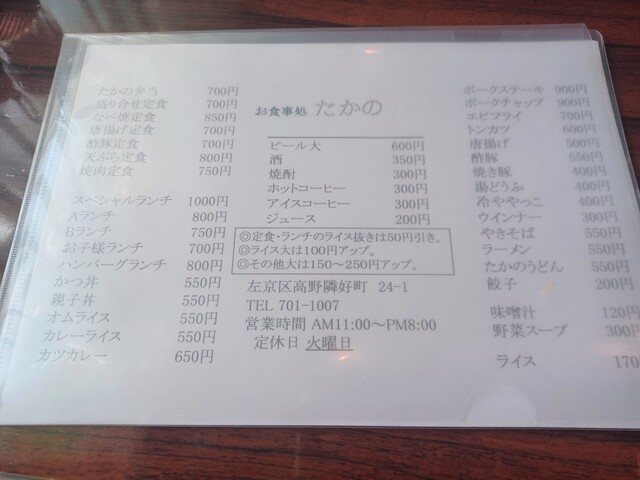 たかの弁当 700円
盛り合せ定食 700円
なべ焼定食 850円
唐揚げ定食 700円
酢豚定食 700円
天ぷら定食 800円
焼肉定食 750円
スペシャルランチ 1000円
Aランチ 800円
Bランチ 750円
お子様ランチ 700円
ハンバーグランチ 800円
かつ丼 550円
親子丼 550円
オムライス 550円
カレーライス 550円
カツカレー 650円
お食事処 たかの
ビール大 600円
酒 350円
焼酎 300円
ホットコーヒー 300円
アイスコーヒー 300円
ジュース 200円
◎定食・ランチのライス抜きは50円引き。
◎ライス大は100円アップ。
◎その他大は150～250円アップ。
左京区高野隣好町 24-1
TEL 701-1007
営業時間 AM11:00～PM8:00
定休日 火曜日
ポークステーキ 900円
ポークチャップ 900円
エビフライ 700円
トンカツ 600円
唐揚げ 500円
酢豚 550円
焼き豚 400円
湯どうふ 400円
冷ややっこ 400円
ウインナー 300円
やきそば 550円
ラーメン 550円
たかのうどん 550円
餃子 200円
味噌汁 120円
野菜スープ 300円
ライス 170